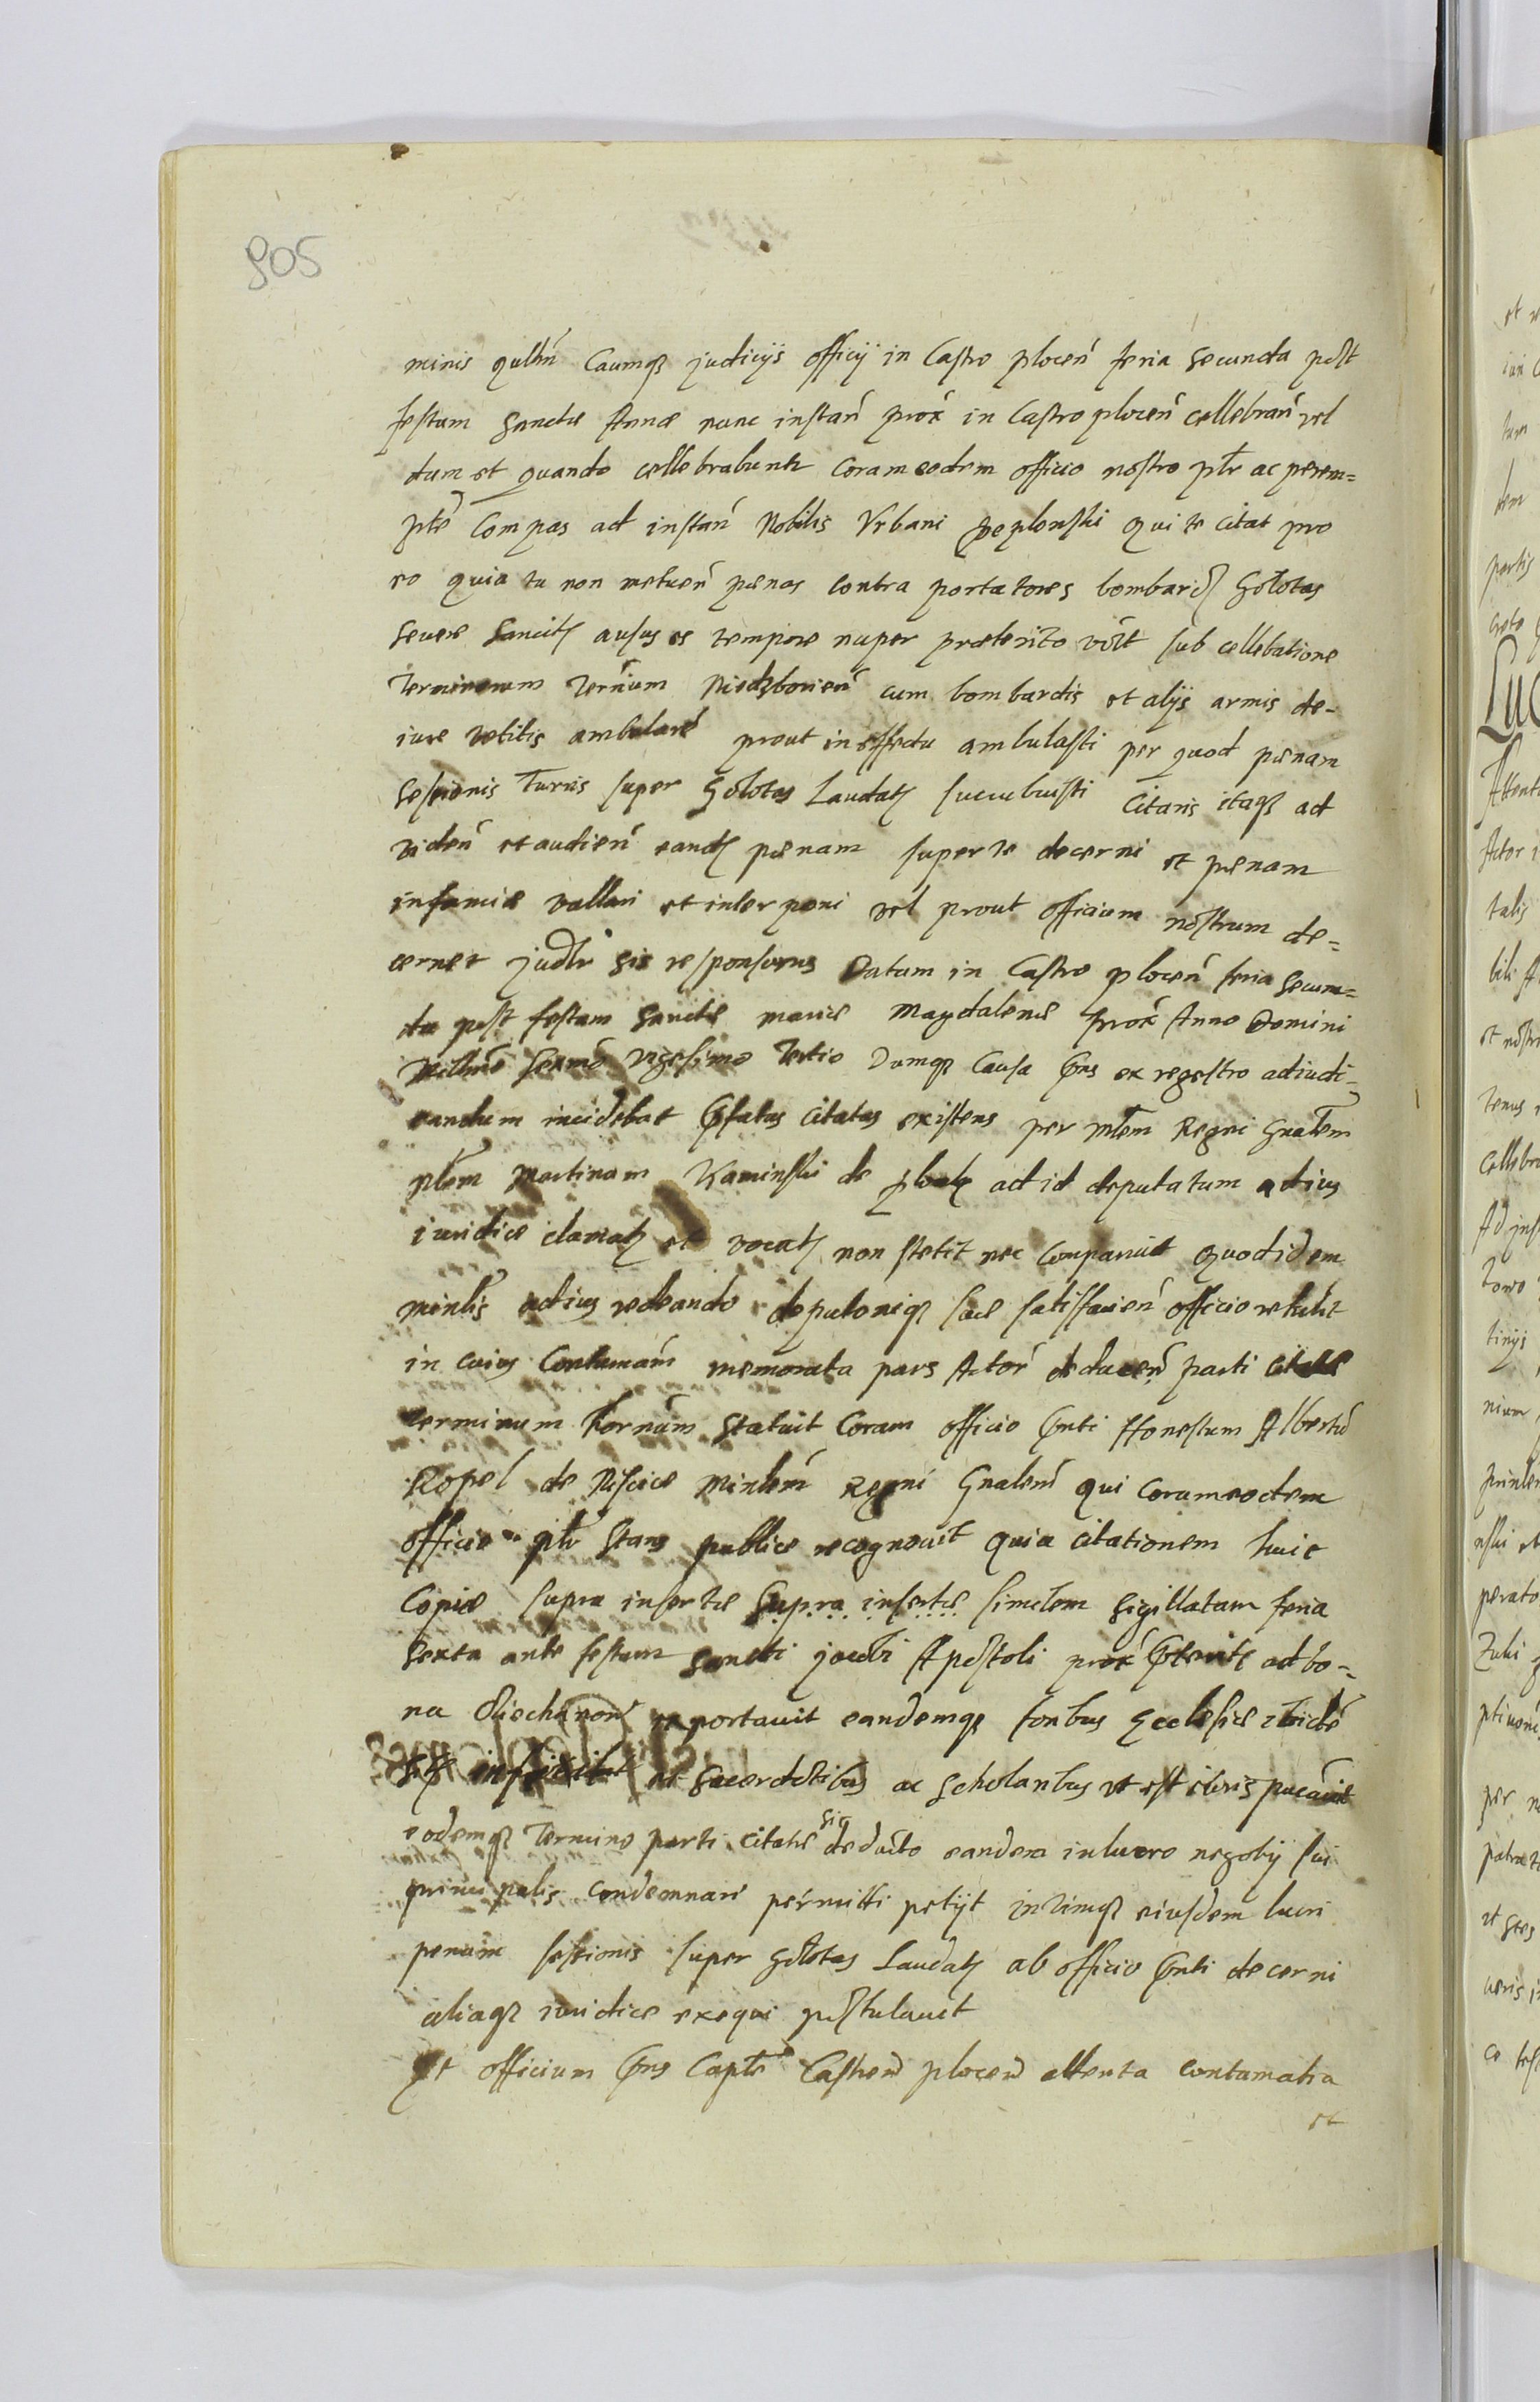 905
minis qulbń Caumq judicijs officij in Castro plocen̄ feria secunda post
festum Sanctæ Annæ nunc instan̄ prox̄ in Castro plocen̄ cellebran̄ vel
dum et quando cellebrabuntr coram eodem officio nostro pltr ac perem=
ptē Compas ad instan̄ Nobilis Vrbani Peplonski qui te citat pro
eo quia tu non metuen̄ pænas contra portatores bombard Golotas
seuere sancitas ausus es tempore nuper præterito vōlt sub cellebatione
Terminorum Terrūm Niedzborien̄ cum bombardis et alijs armis de-
iure vetitis ambularē prout in effectu ambulasti per quod pænam
Sessionis Turris super Golotas Laudatą succubuisti Citaris itaq ad
viden̄ et audien̄ eandą pænam super te decerni et pænam
infamiæ vallari et interponi vel prout officium nostrum de=
cernet judltr sis responsurus Datum in Castro plocen̄ feria Secun=
da post festum Sanctæ mariæ Magdalenæ prox̄ Anno Domini
Millmō Sexmō vigesimo Tertio Dumq Causa pns ex regestro adiudi-
candum incidebat pfatus Citatus existens per mltem Regni Gnalem
pltem Martinum Kaminski de plock ad id deputatum adius
iuridice clamatą et vocatą non stetit nec Comparuit quod idem
minlis adius redeundo deputoniq suæ satisfacien̄ officio retulit
in cuius Contumām memorata pars Actor̄ deducen̄ parti citatæ
terminum Kornūm Statuit Coram officio pnti Honestum Albertū
Kopeł de Niscice Minlem̄ Regni Gnalem̄ qui Coram eodem
officio pltr Stans publice recognouit quia citationem huic
Copiæ supra insertæ supra insertæ similem sigillatam feria
Sexta ante festum Sancti Jacobi Apostoli prox̄ pteritą ad bo-
na Oiechanow reportauit eandemq foribus Ecclesiæ ibidē
et sacerdotibus ac scholaribus vt est iuris pucauit
eodemq Termino parti citatæ sic deducto eandem in lucro negotij sui
principalis condemnari permitti petijt in vimq eiusdem lucri
penam sessionis super golotas Laudatą ab officio pnti decerni
aliaq iuridice exequi postulauit
Et officium pns Captē Castren̄ plocen̄ attenta contumatia
et